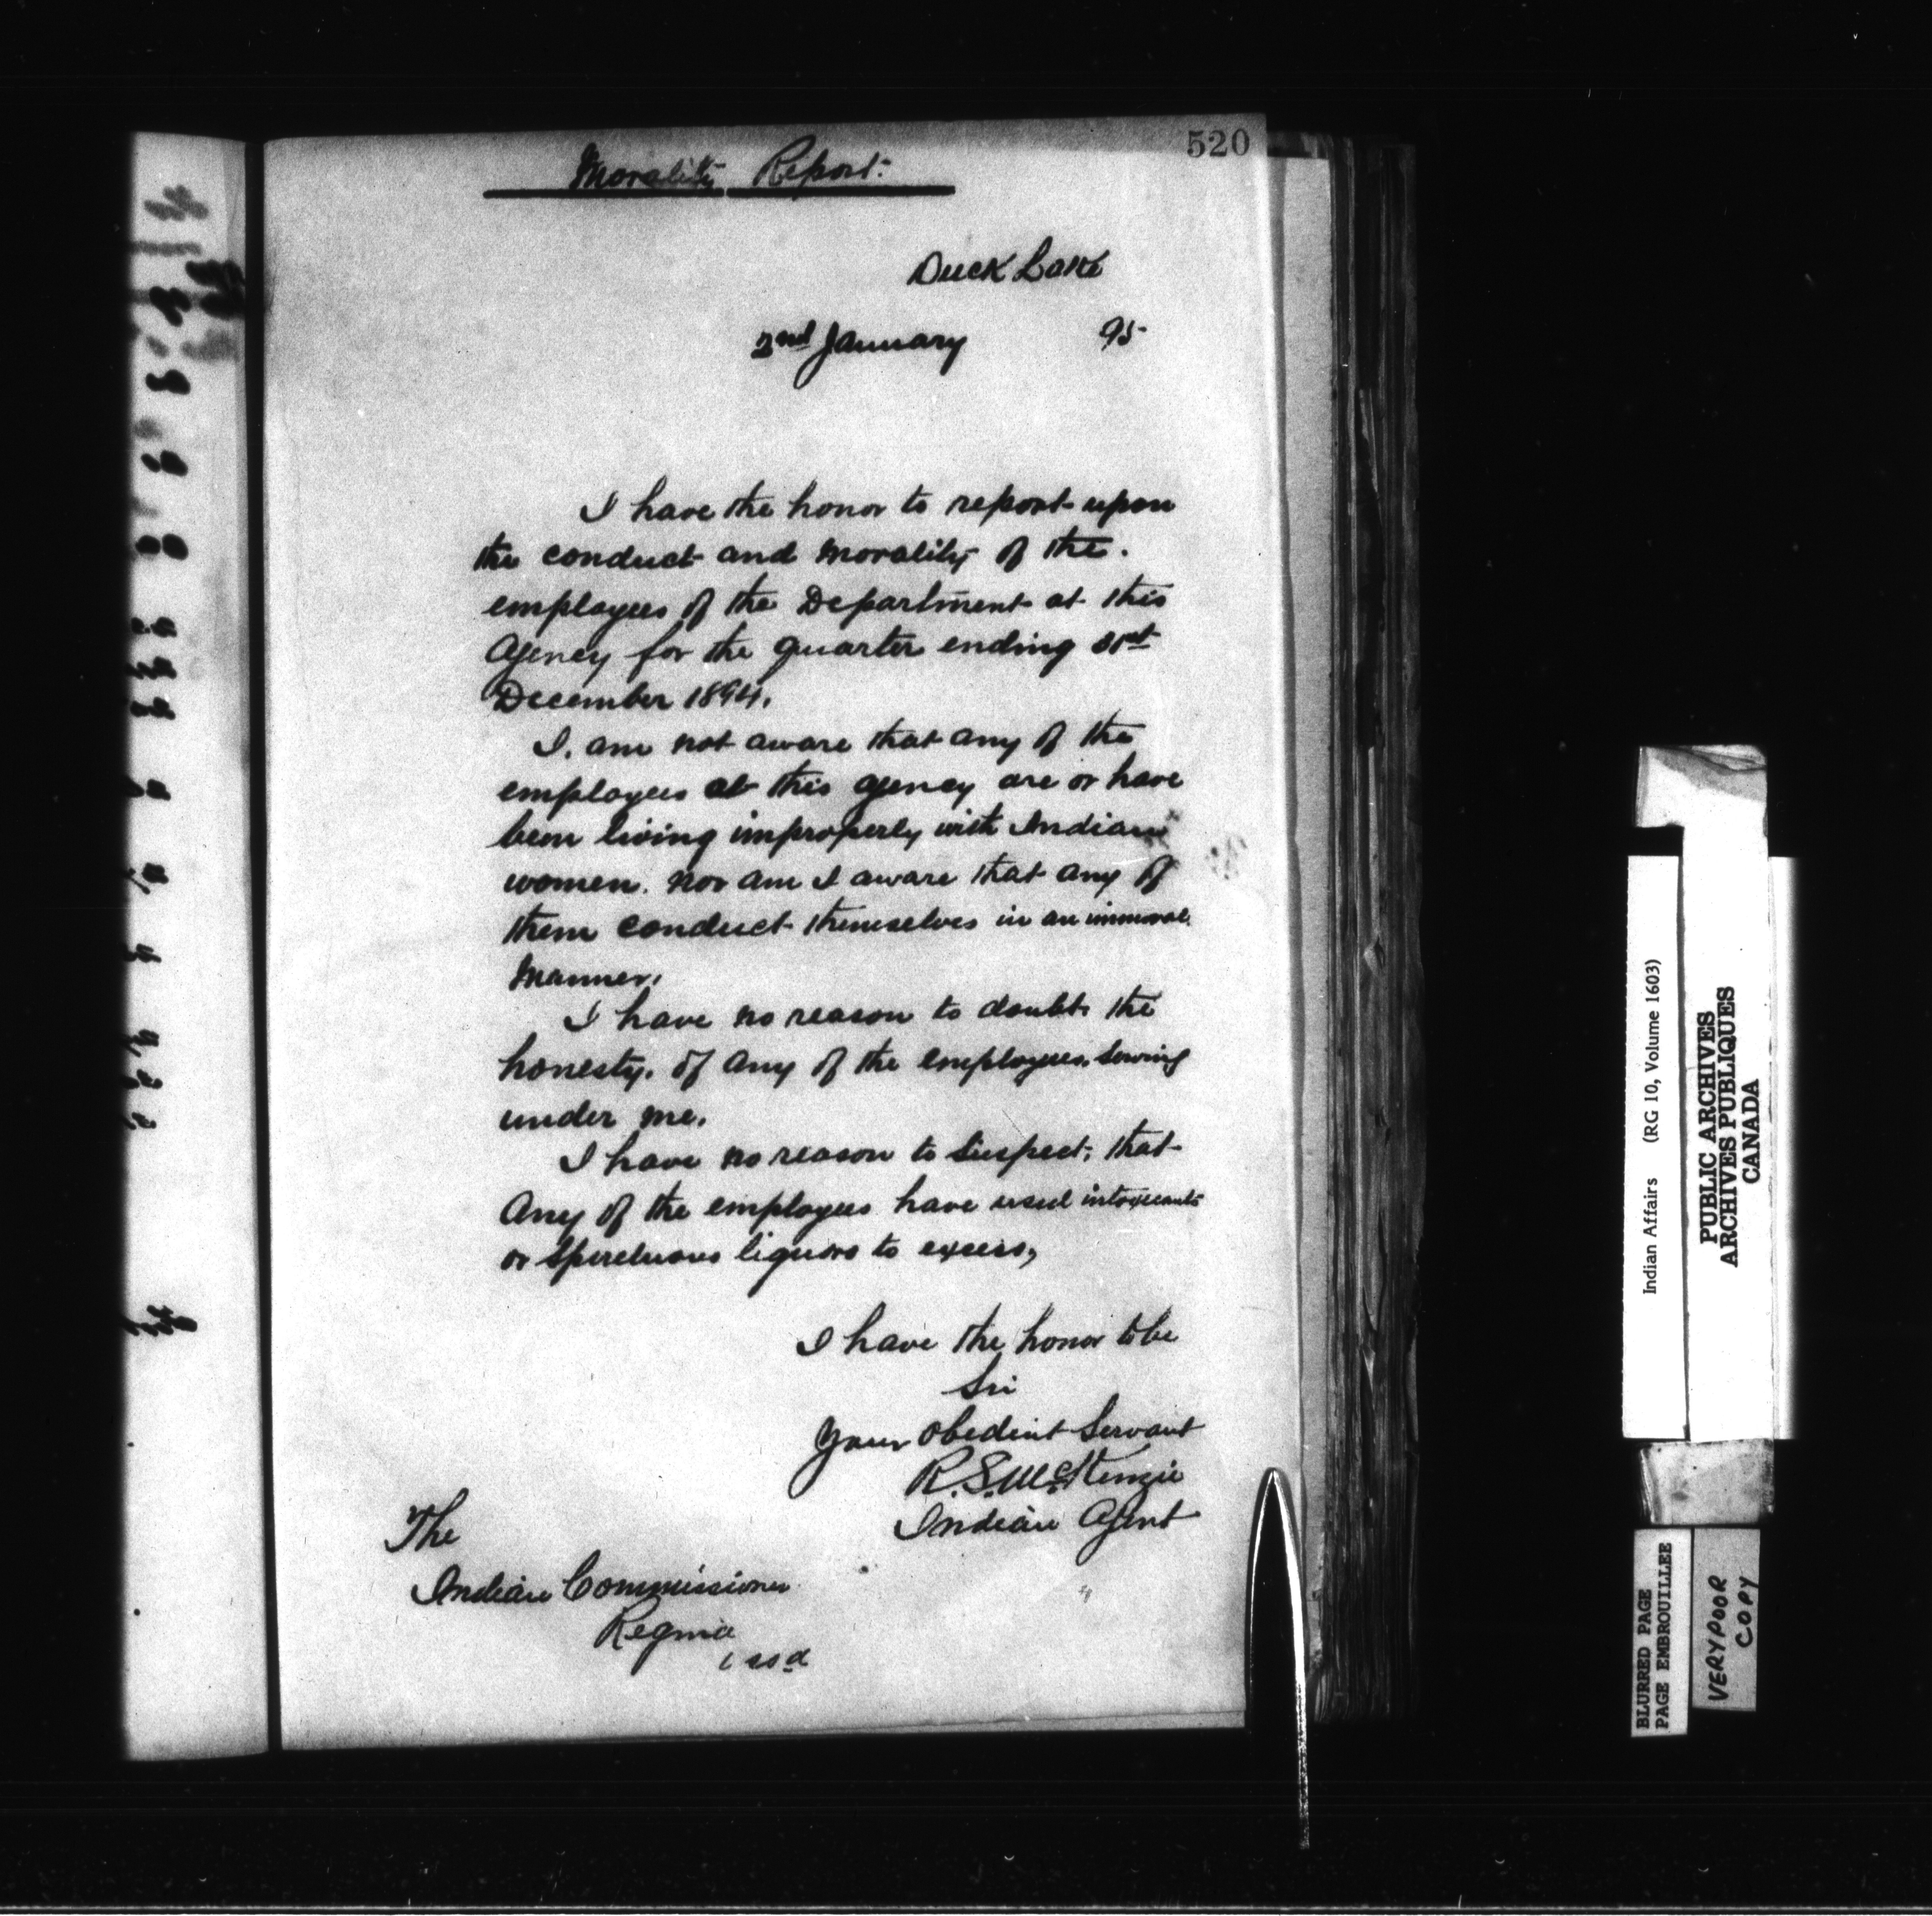 520
Morality Report.
Duck Lake
2nd January 95
I have the honor to report upon
the conduct and morality of the.
employees of the Department at this
Agency for the quarter ending 31st
December 1894.
I. am not aware that any of the
employees at this agency are or have
been living improperly with Indian
women. nor am I aware that any of
them conduct themselves in an immoral
manner.
I have no reason to doubt the
honesty. of any of the employees. serving
under me.
I have no reason to suspect, that
Any of the employees have used intoxicants
or spirituous liquors to excess,
I have the honor to be
Sir
Your obedient Servant
R. S. McKenzie
Indian Agent
The
Indian Commissioner
Regina
Assa
Indian Affairs (RG 10, Volume 1603)
PUBLIC ARCHIVES
ARCHIVES PUBLIQUES
CANADA
BLURRED PAGE
PAGE EMBROUILLEE
VERY POOR
COPY